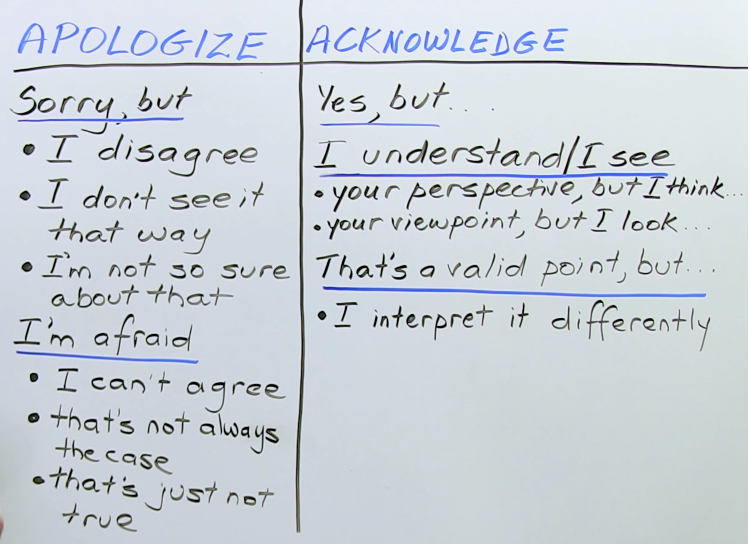 APOLOGIZE
Sorry, but
• I disagree
• I don't see it
that way
• I'm not so sure
about that
I'm afraid
• I can't agree
• that's not always
the case
• that's just not
true
ACKNOWLEDGE
Yes, but....
I understand/I see
• your perspective, but I think...
• your viewpoint, but I look...
That's a valid point, but...
• I interpret it differently